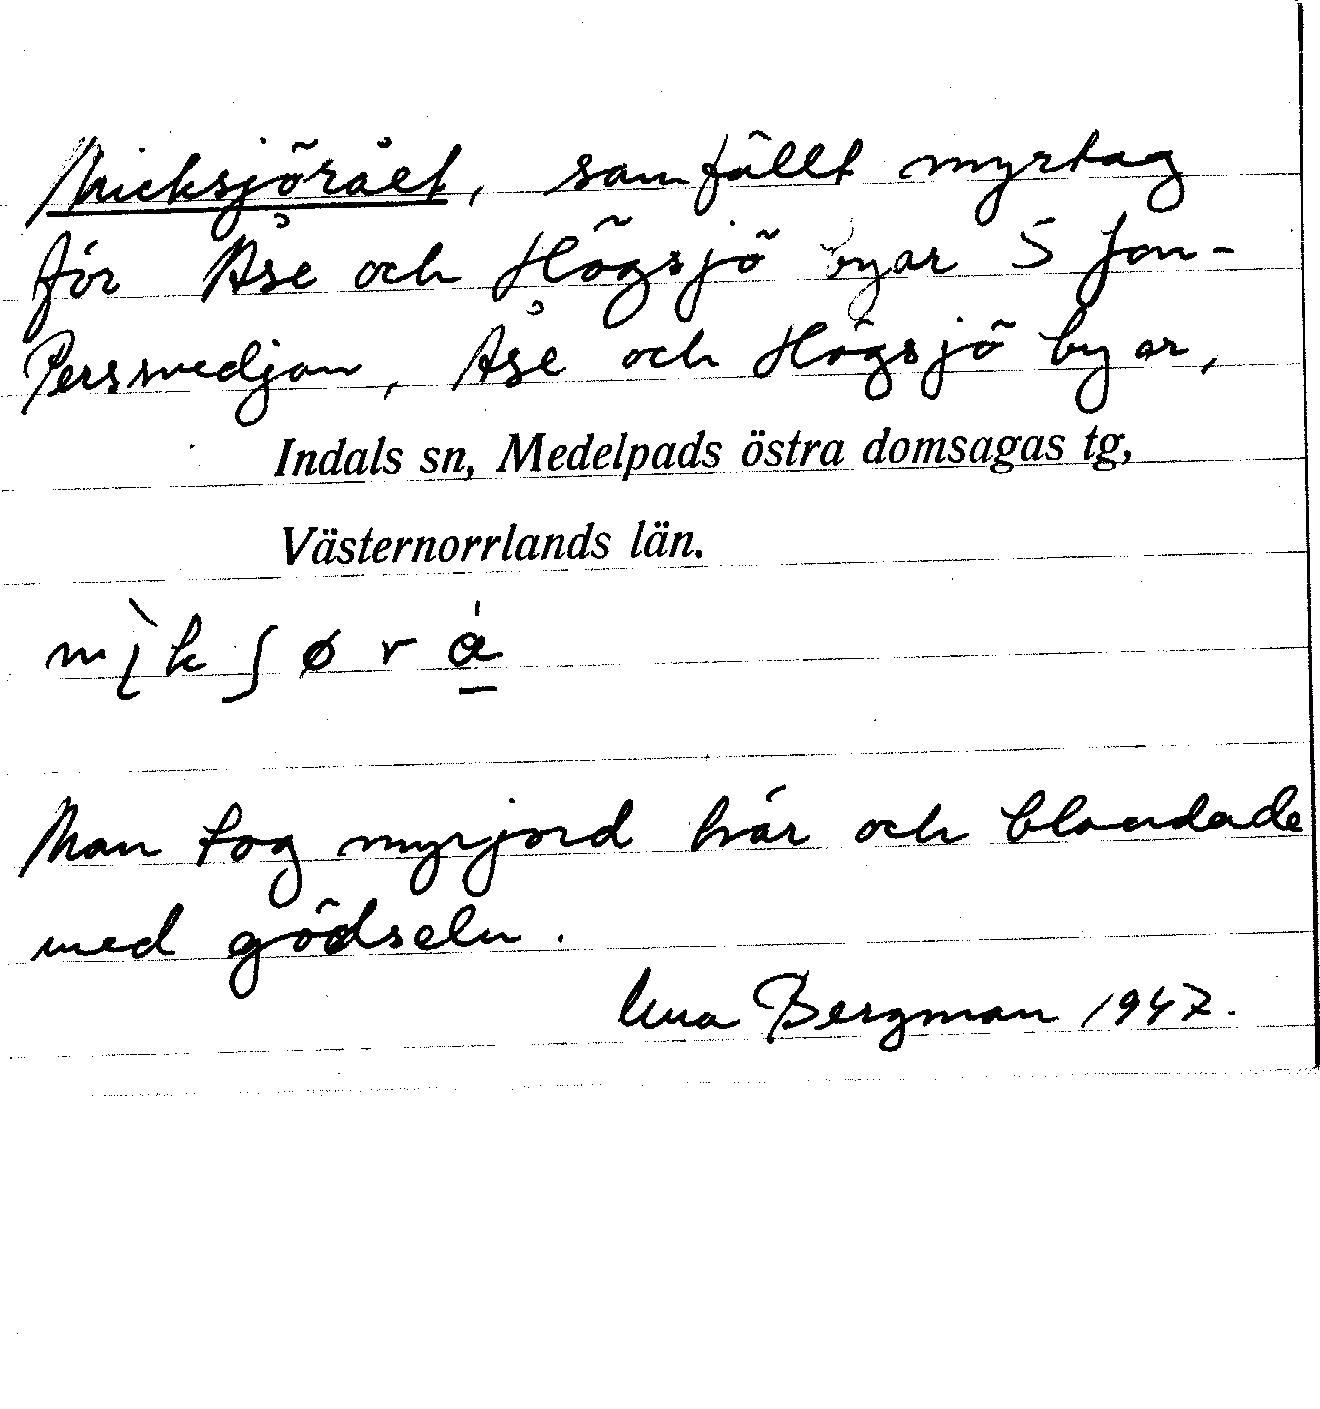 Micksjörået, samfällt myrtag
för Åse och Högsjö byar S Jon-
Persmedjan, Åse och Högsjö byar,
Indals sn, Medelpads östra domsagas tg,
Västernorrlands län.
Man tog myrjord här och blandade
med gödseln.
Bergman 1947.